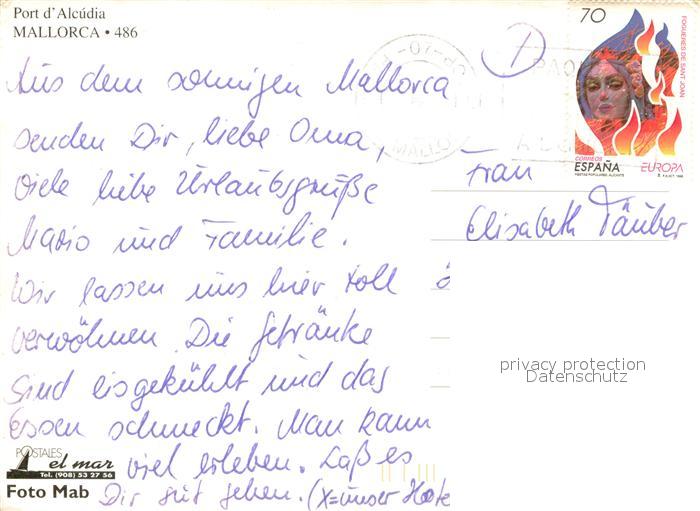 Port d'Alcúdia
MALLORCA • 486
Aus dem sonnigen Mallorca
senden Dir, liebe Oma,
viele liebe Urlaubsgrüße
Mario und Familie.
Wir lassen uns hier toll
verwöhnen. Die Getränke
sind eisgekühlt und das
Essen schmeckt. Man kann
viel erleben. Laß es
Dir gut gehen. (X=unser Hote
POSTALES
el mar
Tel. (908) 53 27 56
Foto Mab
70
FOGUERES DE SANT JOAN
CORREOS
ESPAÑA
EUROPA
FIESTAS POPULARES. ALICANTE
Frau
Elisabeth Täuber
privacy protection
Datenschutz